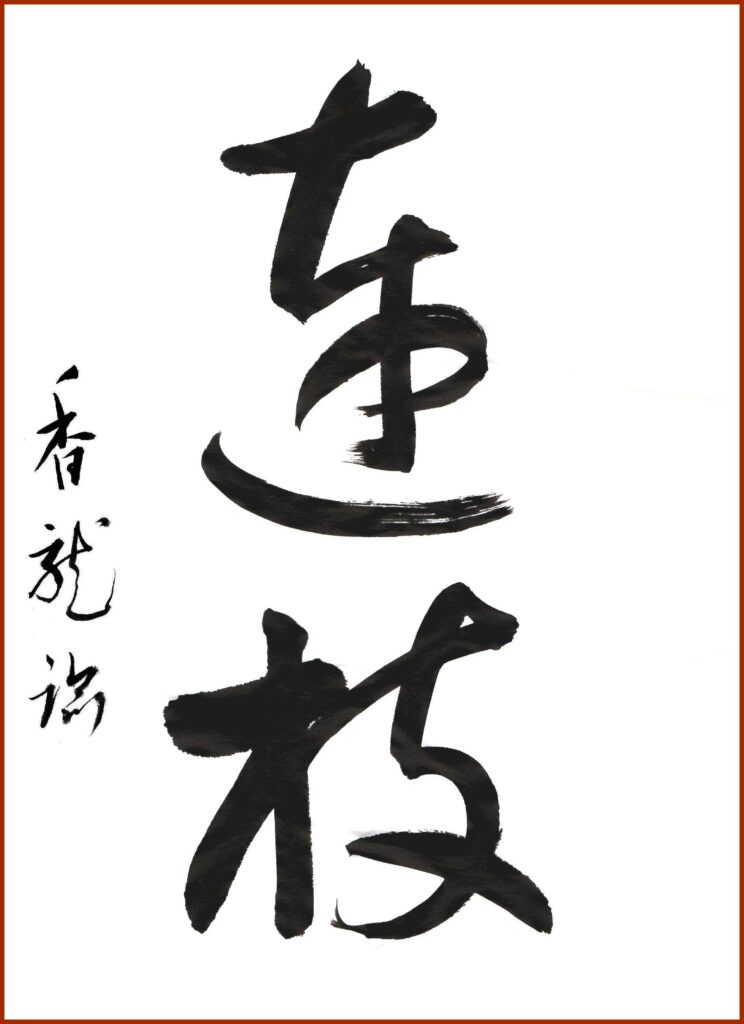 連枝
香龍臨